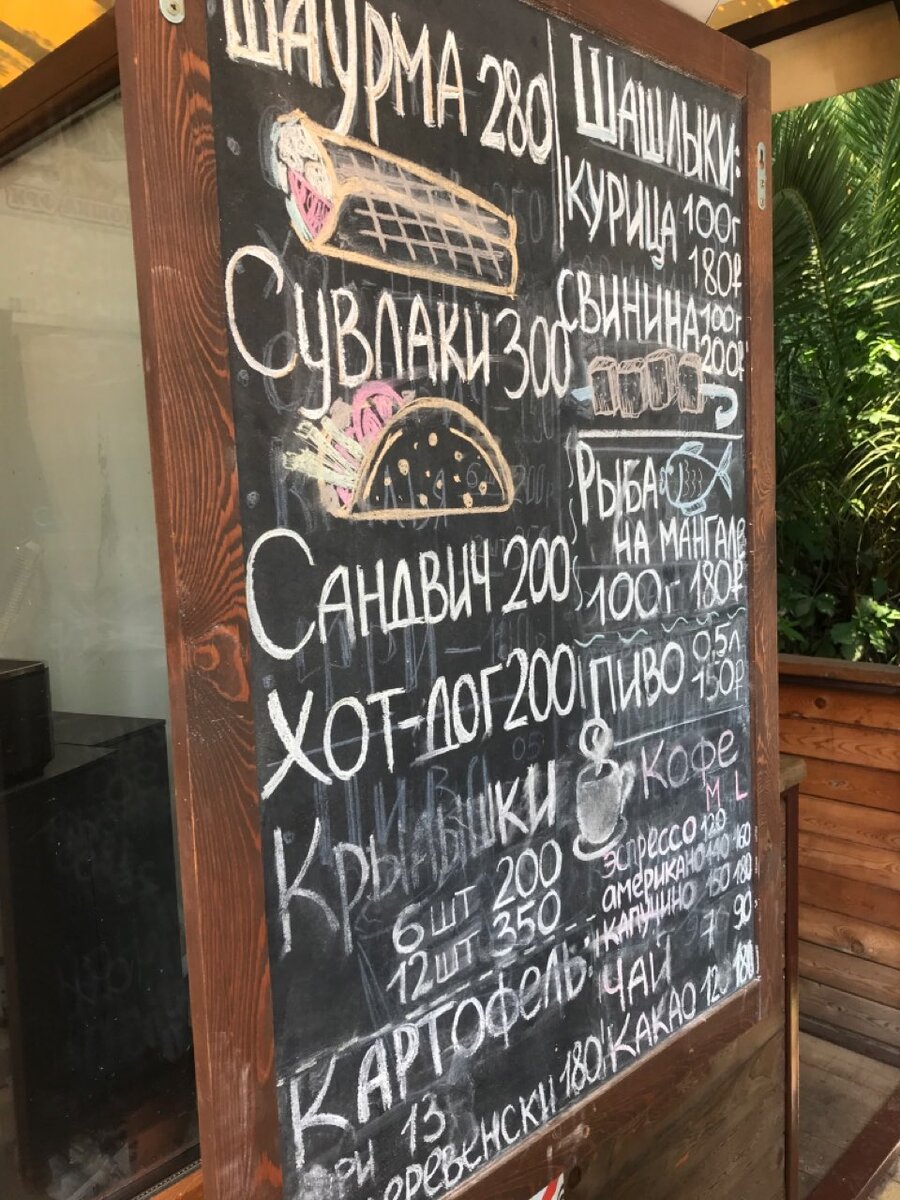 ШАУРМА 280
СУВЛАКИ 300
САНДВИЧ 200
ХОТ-ДОГ 200
КРЫЛЫШКИ
6 шт 200
12 шт 350
КАРТОФЕЛЬ:
180
ШАШЛЫКИ:
КУРИЦА 100г
180₽
СВИНИНА 100г
200₽
РЫБА
НА МАНГАЛЕ
100г 180₽
ПИВО 0,5л
150₽
КОФЕ
M L
ЭСПРЕССО 120
АМЕРИКАНО 160
КАПУЧИНО 150 180
ЧАЙ 90
КАКАО 120 180